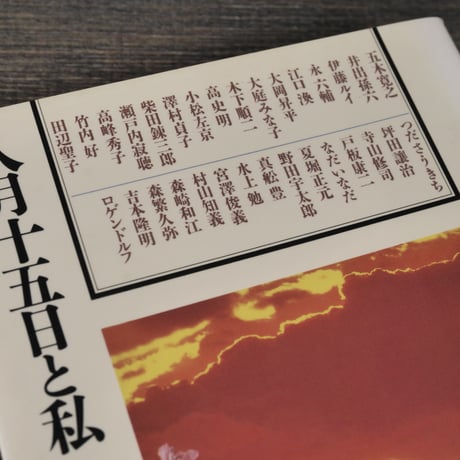 八月十五日と私
五木寛之
井田孫六
伊藤ルイ
永六輔
江口渙
大岡昇平
大庭みな子
木下順二
高史明
小松左京
澤村貞子
柴田錬三郎
瀬戸内寂聴
高峰秀子
竹内好
田辺聖子
つださうきち
坪田譲治
寺山修司
戸板康二
なだいなだ
夏堀正元
野田宇太郎
真船豊
水上勉
宮澤俊義
村山知義
森崎和江
森繁久弥
吉本隆明
ロゲンドルフ